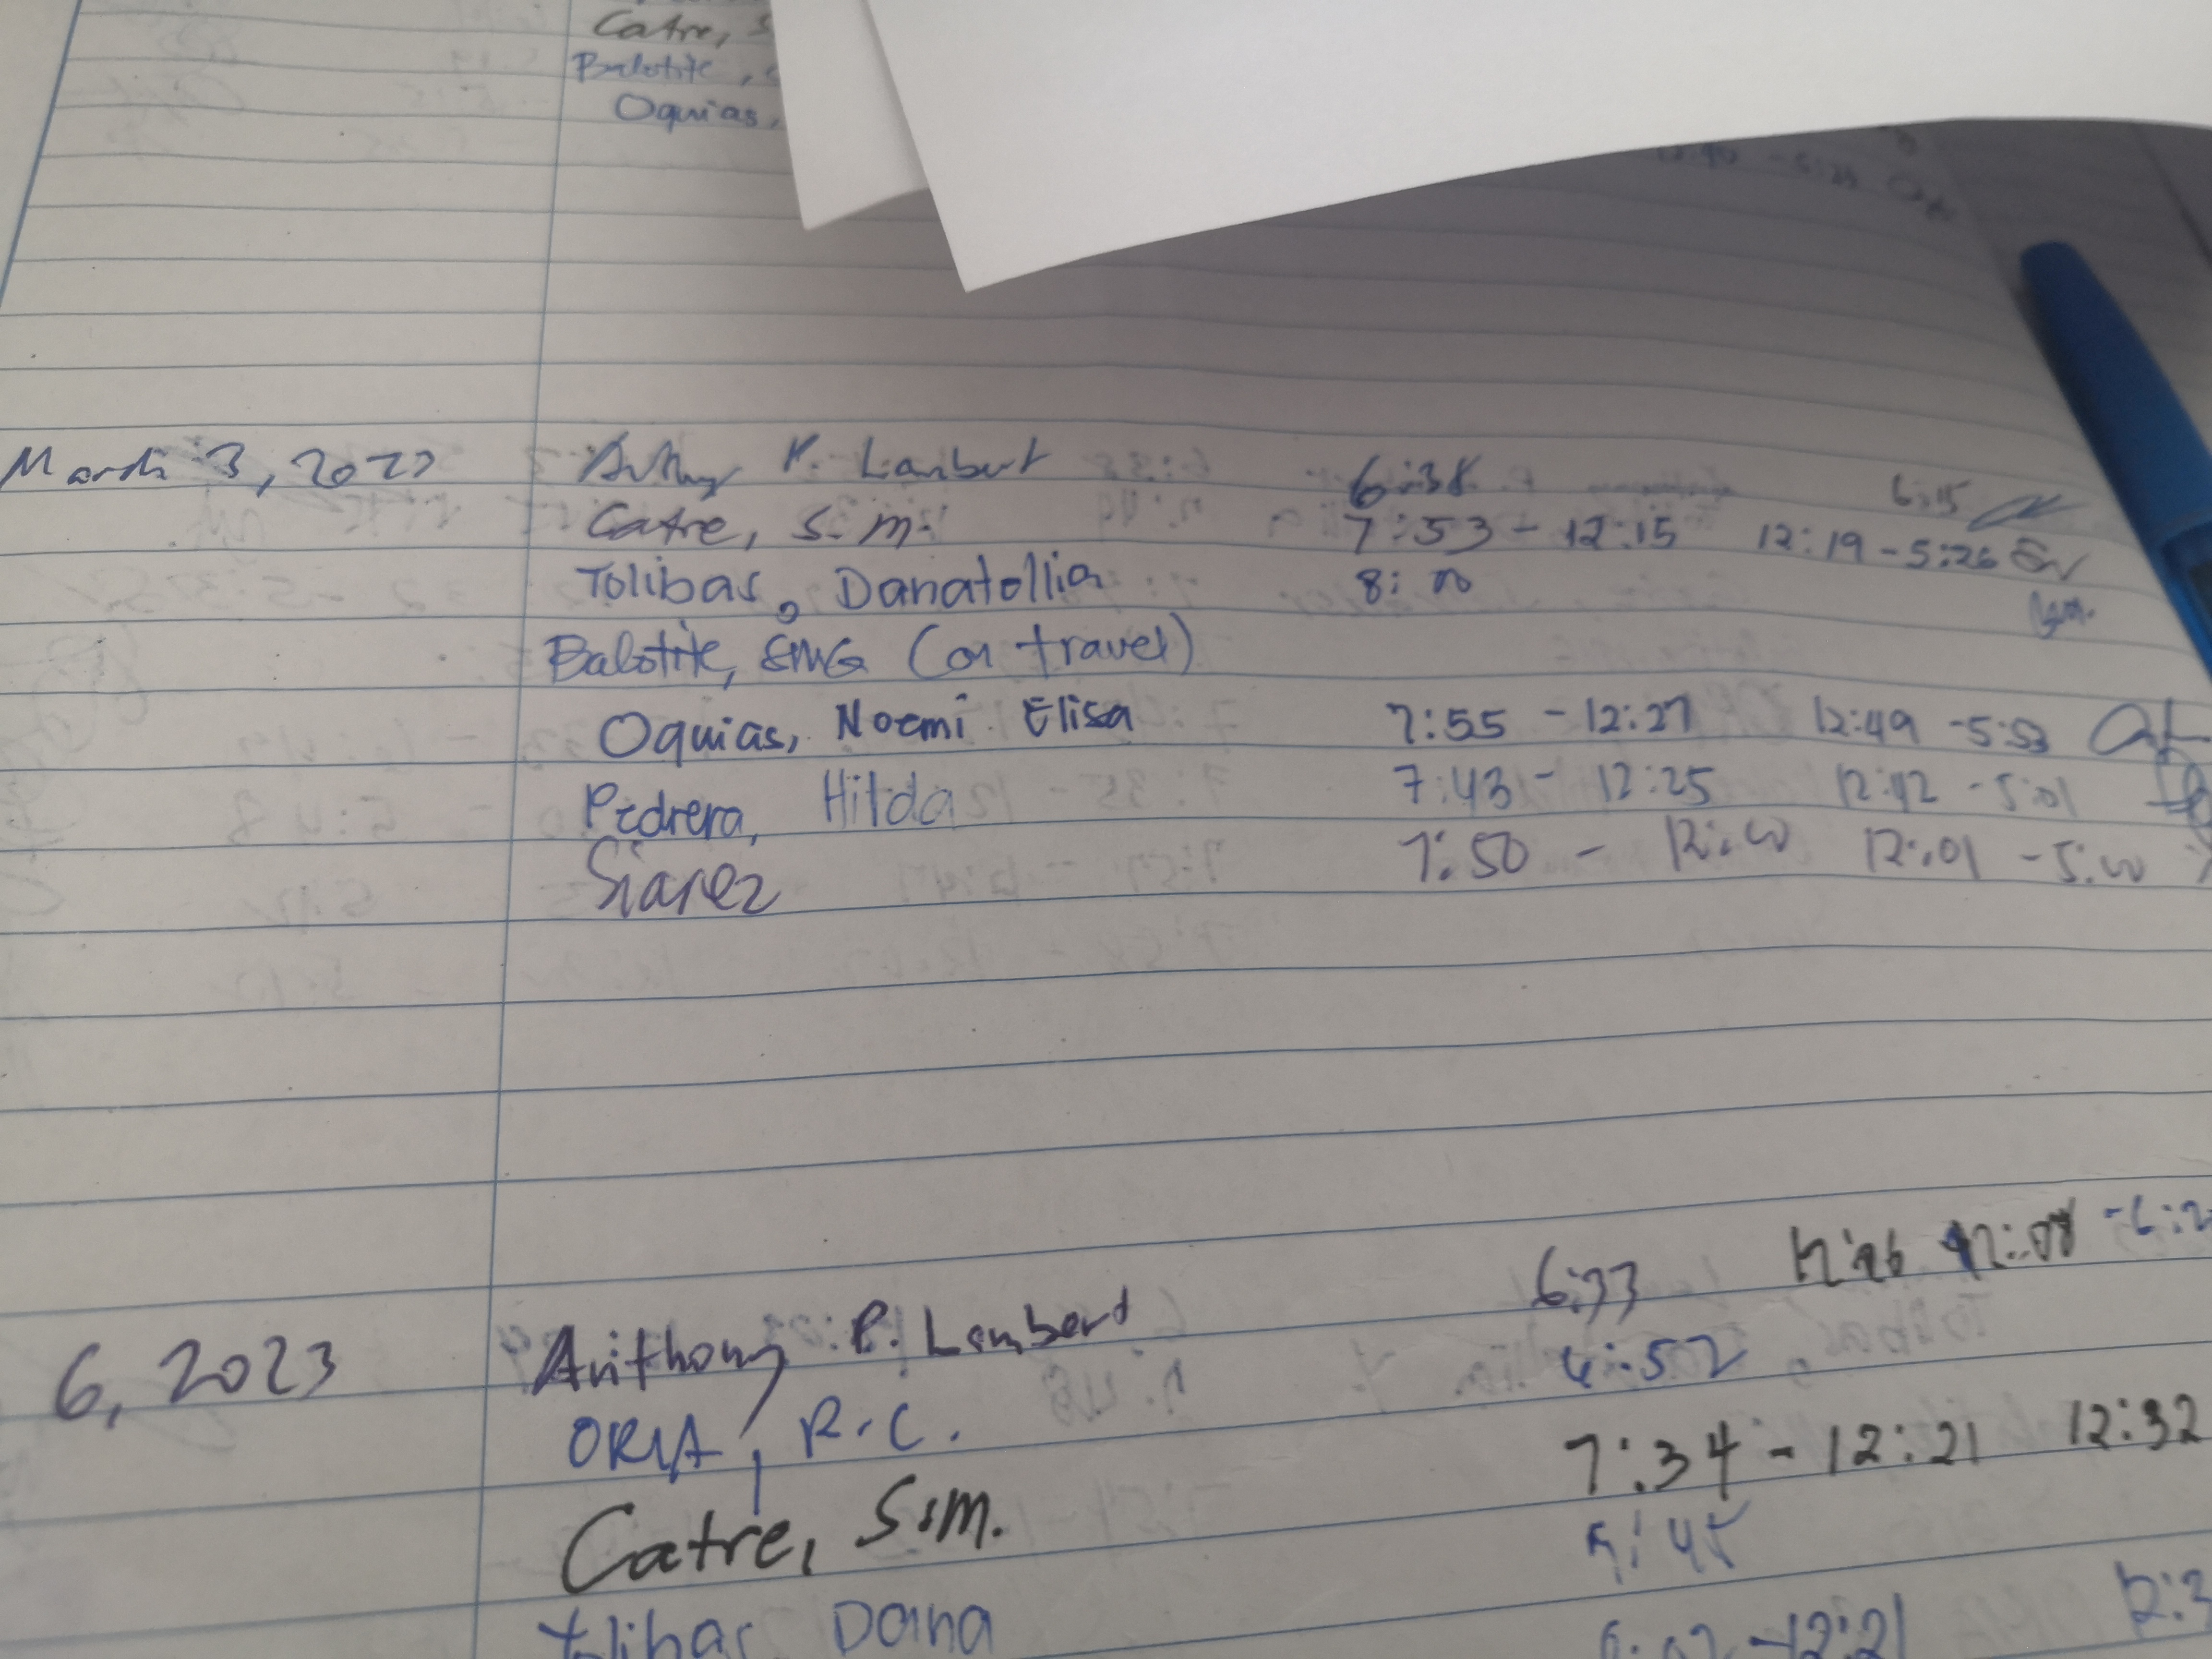 Catre, S
Balotite,
Oquias,
March 3, 2023 P. Lambert 6:38 6:15
Catre, S.M. 7:53 - 12:15 12:19 - 5:26
Tolibas, Danatollia 8:00
Balotite, SMG (on travel)
Oquias, Noemi Elisa 7:55 - 12:27 12:49 - 5:53
Pedrera, Hilda 7:43 - 12:25 12:42 - 5:01
Siarez 7:50 - 12:00 12:01 - 5:00
6, 2023 Anthony P. Lambert 6:33 12:08
ORIA, R.C. 6:52
Catre, S.M. 7:34 - 12:21 12:32
Tolibas Dana 7:45
12:21 12:3